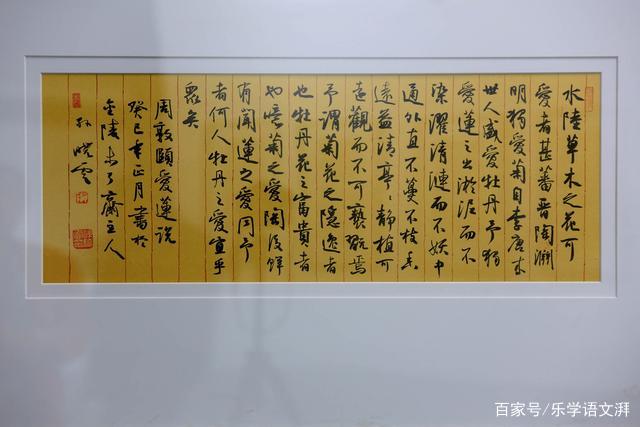 水陸草木之花可
愛者甚蕃晋陶淵
明獨愛菊自李唐来
世人盛愛牡丹予獨
愛蓮之出淤泥而不
染濯清漣而不妖中
通外直不蔓不枝香
遠益清亭静植可
遠觀而不可褻翫焉
予謂菊花之隱逸者
也牡丹花之富貴者
也噫菊之愛陶後鮮
有聞蓮之愛同予
者何人牡丹之愛宜乎
眾矣
周敦頤愛蓮説
癸巳年正月書於
金陵未了齋主人
孫曉雲
百家号/乐学语文湃